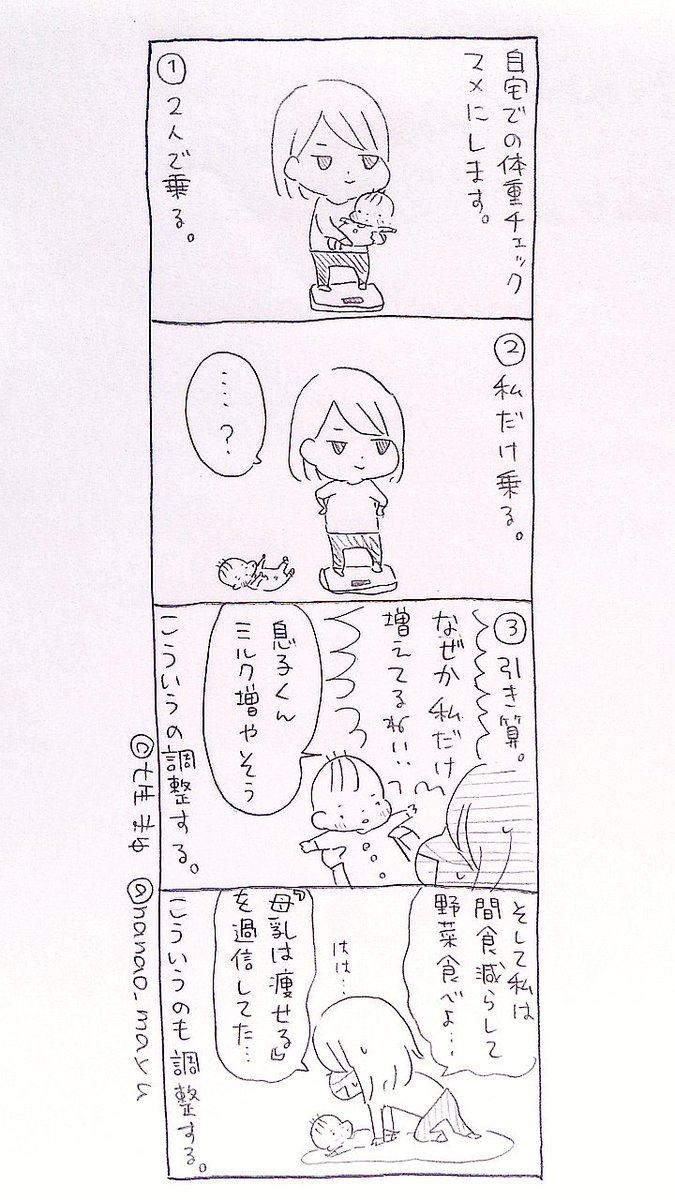 自宅での体重チェック
マメにします。
①
2人で乗る。
②
私だけ乗る。
……?
③
引き算。
なぜか私だけ
増えてるね…
息子くん
ミルク増やそう
こういうの調整する。
そして私は
間食減らして
野菜食べよ…
はは…
『母乳は痩せる』
を過信してた…
こういうのも調整する。
@nanao_mayu